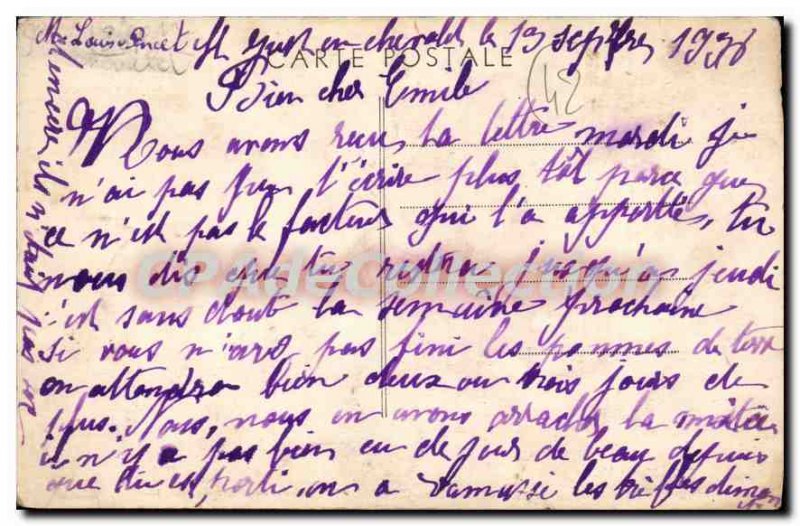 St Just en chevalet le 19 septbre 1936
CARTE POSTALE
42
Bien cher Emile
Nous avons reçu ta lettre mardi je
n'ai pas pu t'écrire plus tôt parce que
ce n'est pas le facteur qui l'a apportée, tu
nous dis que tu restes jusqu'a jeudi
c'est sans dout la semaine prochaine
si vous n'avs pas fini les pommes de terre
on attendra bien deux ou trois jours de
plus. Nous, nous en avons arraché la moitié
il n'y a pas bien eu de jour de beau depuis
que tu es parti, on a ramassé les
CPAdeCollection